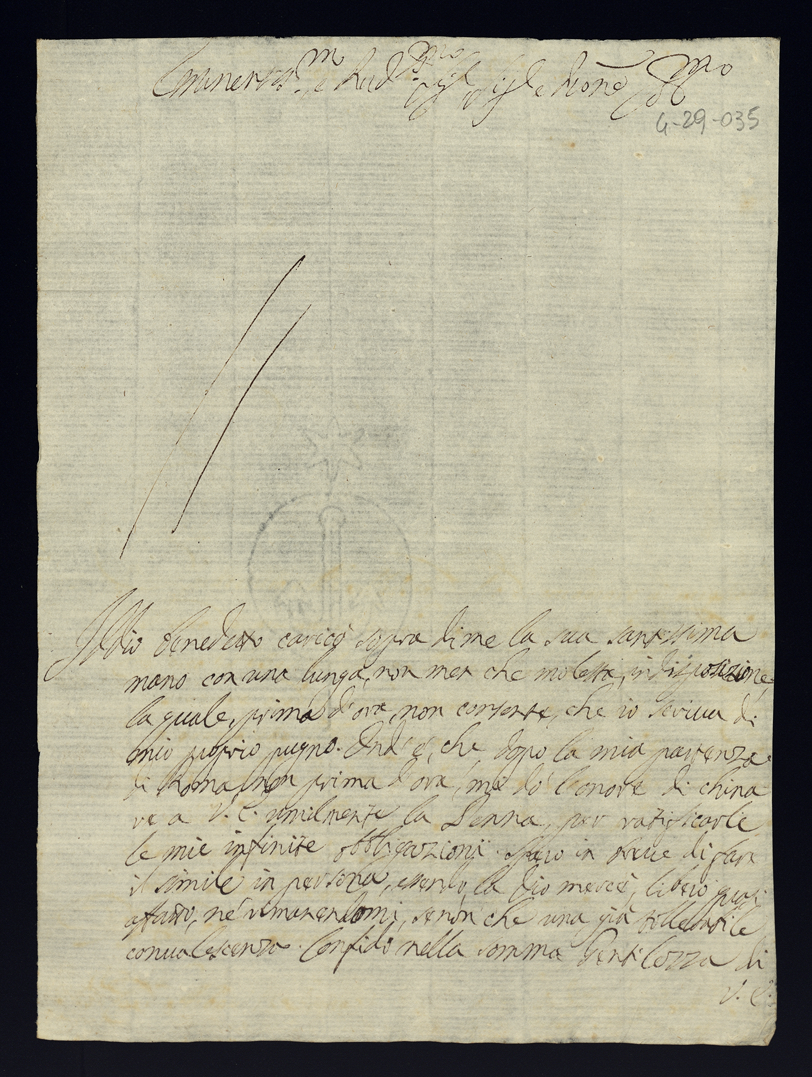 Eminentmo e Rud.mo Sig.r Sig.e Prone Col.mo
4-29-035
Iddio benedetto caricò sopra di me la sua santissima
mano con una lunga, non men che molesta, indisposizione
la quale, prima d'ora, non consente, che io scriva di
mio proprio pugno. Ond'è, che dopo la mia partenza
di Roma, non prima d'ora, mi dò l'onore di china
re a V. E. umilmente la Penna, per ratificarle
le mie infinite obbligazioni. Spero in breve di fare
il simile in persona, essendo, la Dio mercè, libero quasi
affatto, nè rimanendomi, senon che una già tollerabile
convalescenza. Confido nella somma Gentilezza di
V. E.